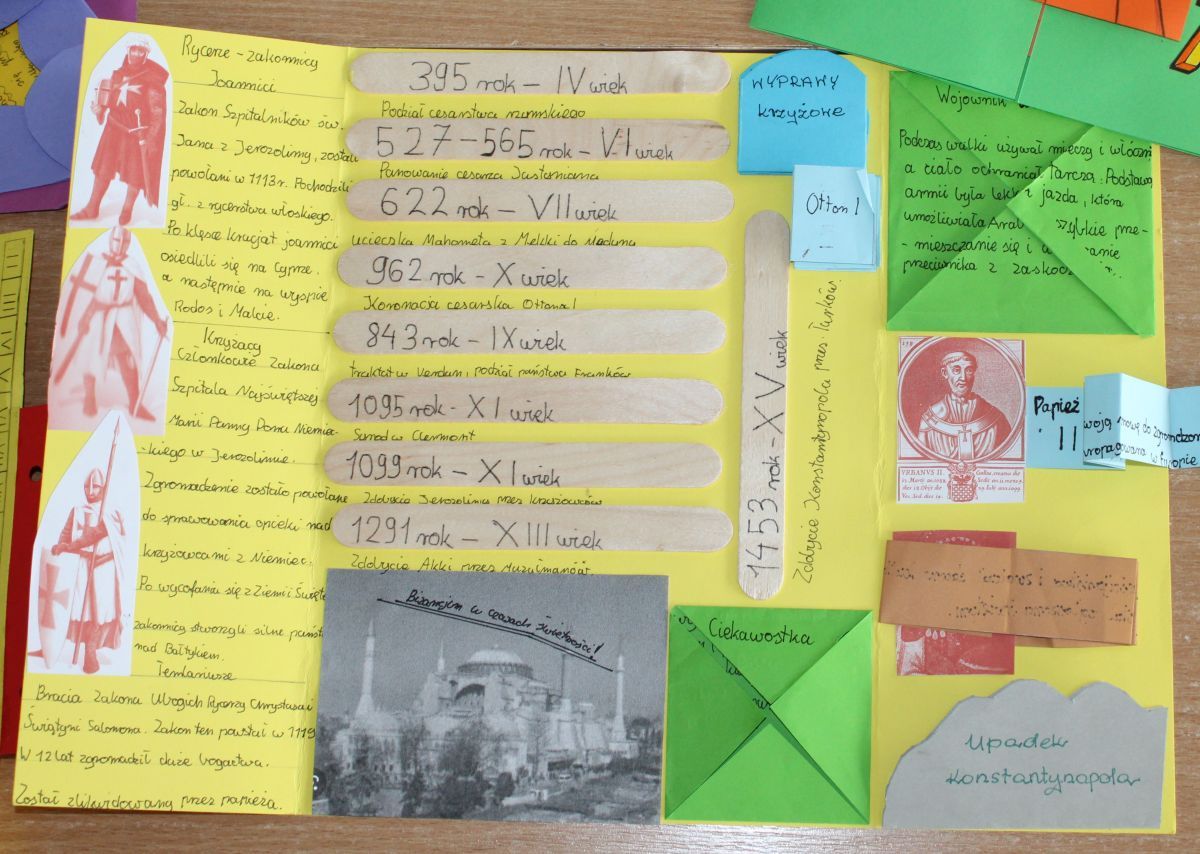 Rycerze - zakonnicy
Joannici
Zakon Szpitalników św.
Jana z Jerozolimy, zostali
powołani w 1113 r. Pochodzili
gł. z rycerstwa włoskiego.
Po klęsce krucjat joannici
osiedlili się na Cyprze.
a następnie na wyspie
Rodos i Malcie.
Krzyżacy
Członkowie Zakonu
Szpitala Najświętszej
Marii Panny Domu Niemiec-
-kiego w Jerozolimie.
Zgromadzenie zostało powołane
do sprawowania opieki nad
krzyżowcami z Niemiec.
Po wycofaniu się z Ziemi Święte
zakonnicy stworzyli silne państ
nad Bałtykiem.
Templariusze
Bracia Zakonu Ubogich Rycerzy Chrystusa i
Świątyni Salomona. Zakon ten powstał w 1119
W 12 lat zgromadził duże bogactwa.
Został zlikwidowany przez papieża.
395 rok - IV wiek
Podział cesarstwa rzymskiego
527-565 rok - VI wiek
Panowanie cesarza Justyniana
622 rok - VII wiek
ucieczka Mahometa z Mekki do Medyny
962 rok - X wiek
Koronacja cesarska Ottona I
843 rok - IX wiek
traktat w Verdun, podział państwa Franków
1095 rok - XI wiek
Synod w Clermont
1099 rok - XI wiek
Zdobycie Jerozolimy przez krzyżowców
1291 rok - XIII wiek
Zdobycie Akki przez Muzułmanów.
Bizancjum w czasach świetności!
WYPRAWY
krzyżowe
Otton I
1453 rok - XV wiek
Zdobycie Konstantynopola przez Turków.
Ciekawostka
Wojownik
Podczas walki używał mieczy i włóczni
a ciało ochraniał tarczą. Podstawą
armii była lekka jazda, która
umożliwiała szybkie prze-
- mieszczanie się i
przeciwnika z
VRBANVS II.
Papież
II
wojo mowę do zgromadzon
propagowana w Europie
Upadek
Konstantynopola